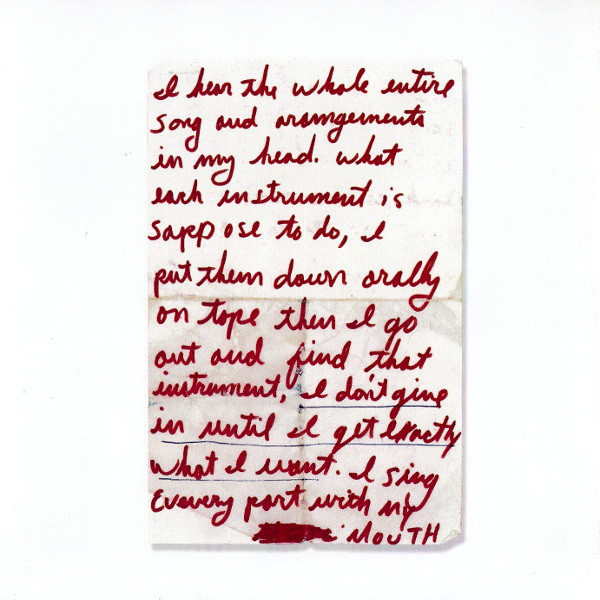 I hear the whole entire
song and aramgements
in my head. what
each instrument is
sappose to do, I
put them down orally
on tape then I go
out and find that
instrument, I don't give
in until I get exactly
what I want. I sing
Everery part with my
MOUTH